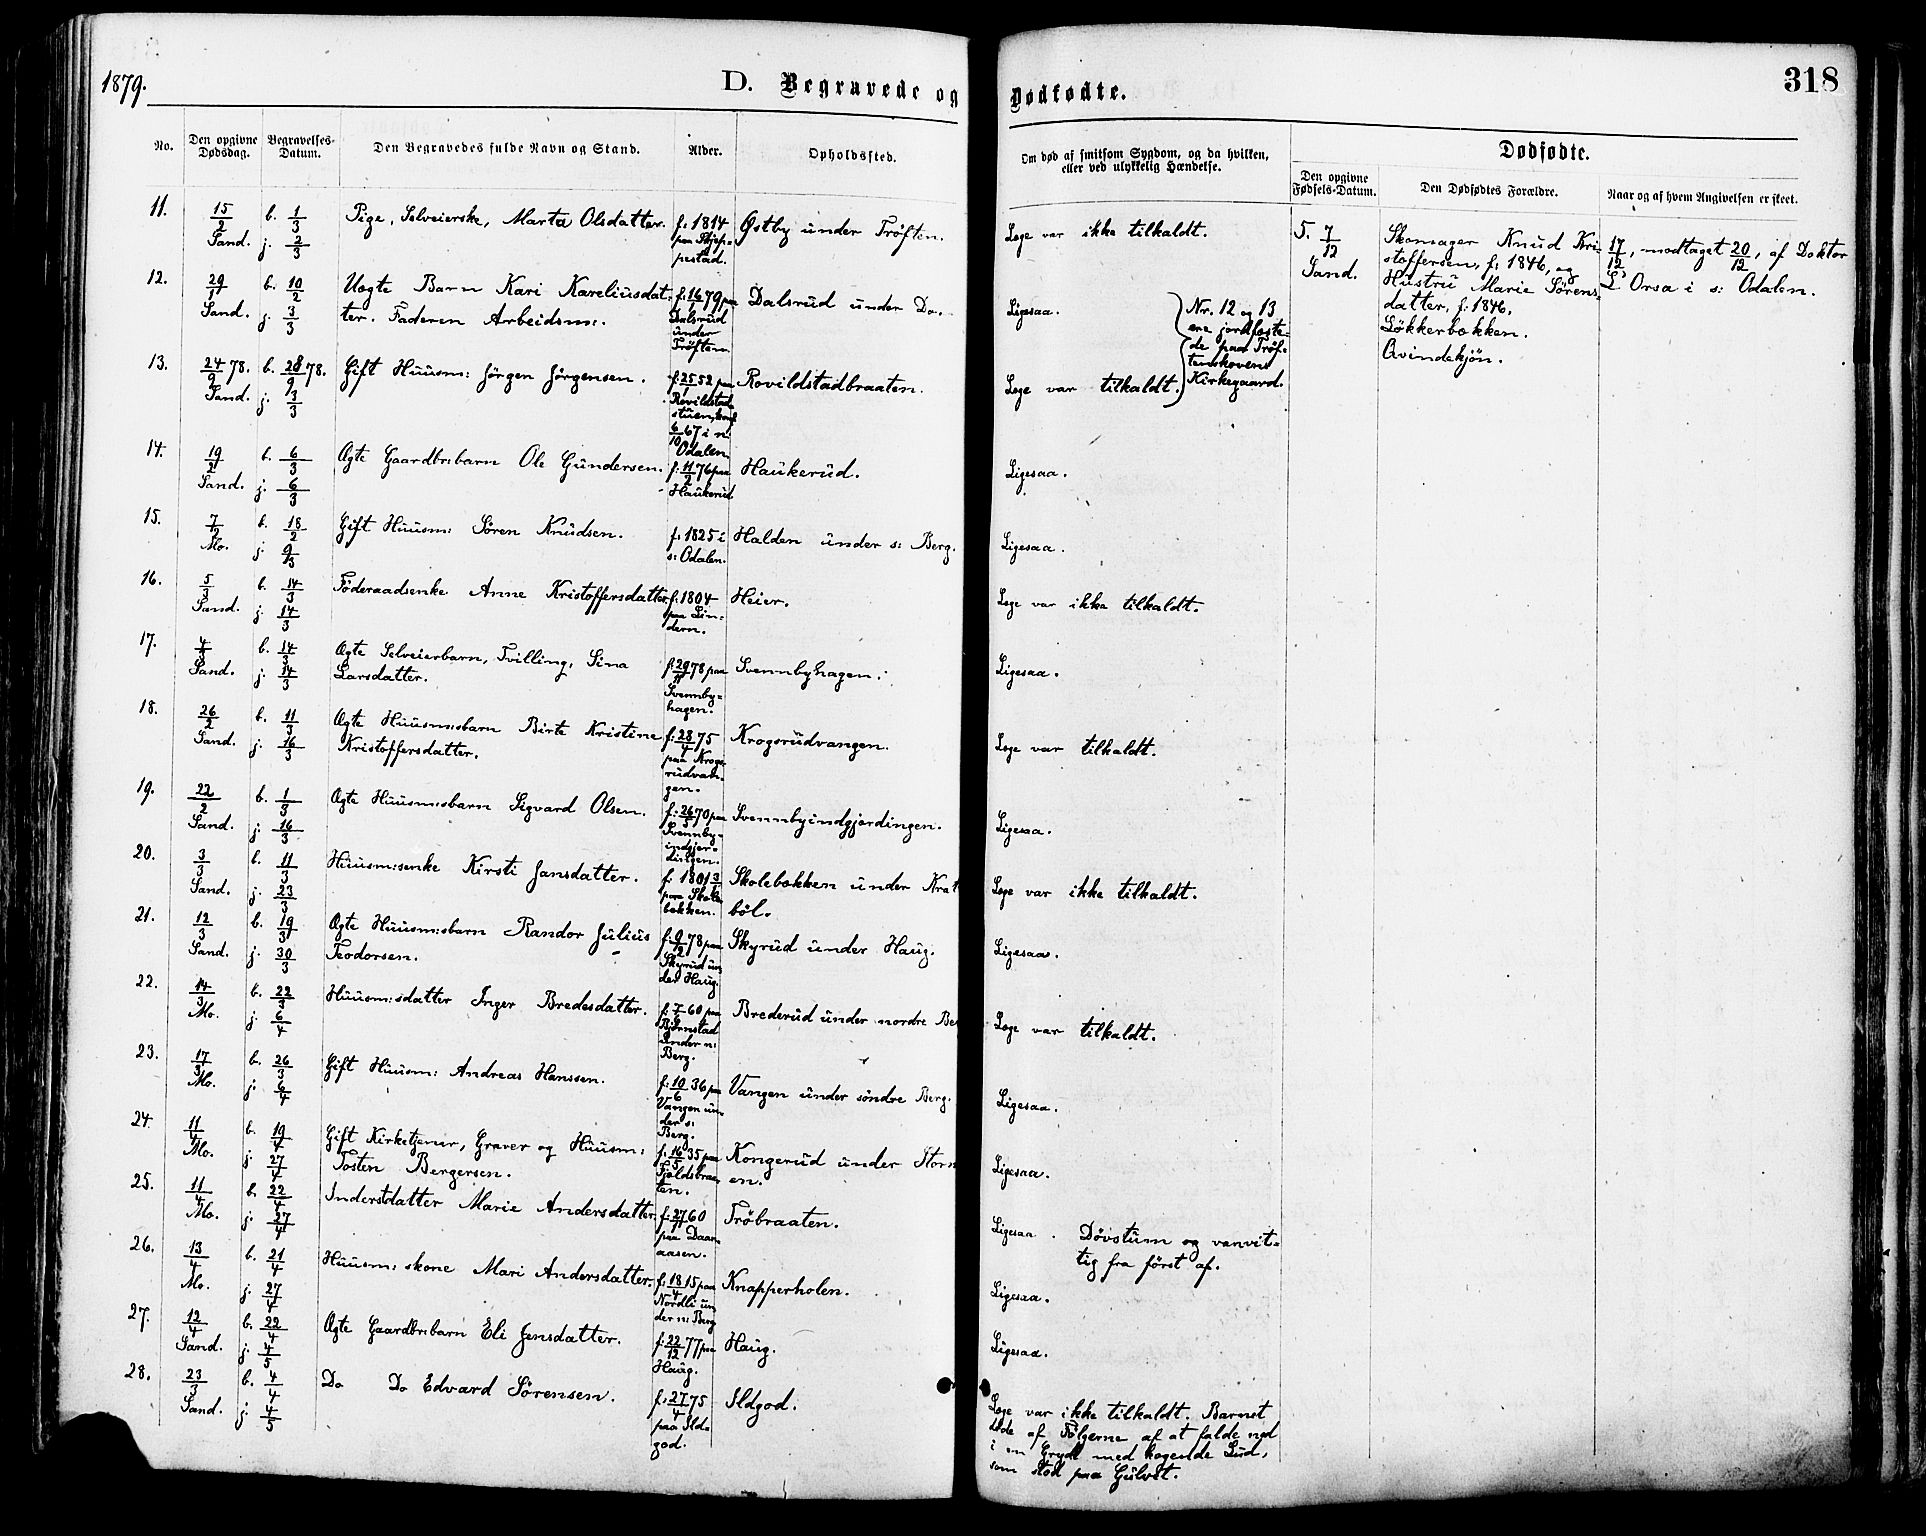 1879.
D. Begravede og Dødfødte.
318
No.
Den opgivne Dødsdag.
Begravelses-Datum.
Den Begravedes fulde Navn og Stand.
Alder.
Opholdssted.
Om død af smitsom Sygdom, og da hvilken,
eller ved ulykkelig Hændelse.
Dødfødte.
Den opgivne Fødsels-Datum.
Den Dødfødtes Forældre.
Naar og af hvem Angivelsen er skeet.
11.
15/2 Sand.
b. 1/3
j. 2/3
Pige, Selveierske, Marta Olsdatter.
f. 1814
paa Skjep-
pestad.
Østby under Trøften.
Læge var ikke tilkaldt.
5. 7/12 Sand.
Skomager Knud Kri-
stoffersen, f. 1846, og
Hustru Marie Sørens-
datter, f. 1846,
Løkkerbækken.
Qvindekjøn.
17/12, modtaget 20/12, af Doktor
L. Orsa i s: Odalen.
12.
29/1 Sand.
b. 10/2
j. 3/3
Uægte Barn Kari Kareliusdat-
ter. Faderen Arbeidsm:.
f. 16/1 79 paa
Dalsrud
under
Trøften
Dalsrud under Do.
Ligesaa.
Nr. 12 og 13
ere jordfæste-
de paa Trøf-
tenskovens
Kirkegaard.
13.
24/9 78. Sand.
b. 28/9 78.
j. 3/3
Gift Huusm: Jørgen Jørgensen.
f. 25/1 52 paa
Rovildstad-
stuen,
6/10 67 i n:
Odalen
Rovildstadbraaten.
Læge var tilkaldt.
14.
19/2 Sand.
b. 6/3
j. 6/3
Ægte Gaardbr:barn Ole Gundersen.
f. 11/2 76 paa
Haukerud
Haukerud.
Ligesaa.
15.
7/2 Mo.
b. 18/2
j. 9/3
Gift Huusm: Søren Knudsen.
f. 1825 i
s: Odalen.
Halden under s: Berg.
Ligesaa.
16.
5/3 Sand.
b. 14/3
j. 14/3
Føderaadsenke Anne Kristoffersdatter
f. 1804
paa Lin-
dern.
Heier.
Læge var ikke tilkaldt.
17.
4/3 Sand.
b. 14/3
j. 14/3
Ægte Selveierbarn, Tvilling, Sina
Larsdatter.
f. 29/11 78 paa
Svennby-
hagen.
Svennbyhagen.
Ligesaa.
18.
26/2 Sand.
b. 11/3
j. 16/3
Ægte Huusm:sbarn Birte Kristine
Kristoffersdatter.
f. 28/4 75
paa Krogs-
rudvan-
gen.
Krogsrudvangen.
Læge var tilkaldt.
19.
22/2 Sand.
b. 1/3
j. 16/3
Ægte Huusm:sbarn Sigvard Olsen.
f. 26/3 70 paa
Svennby-
indgjer-
dingen.
Svennbyindgjærdingen.
Ligesaa.
20.
3/3 Sand.
b. 11/3
j. 23/3
Huusm:senke Kirsti Jansdatter.
paa Skole-
bækken.
Skolebækken under Krat
bøl.
Læge var ikke tilkaldt.
21.
12/3 Sand.
b. 19/3
j. 30/3
Ægte Huusm:sbarn Randor Julius
Teodorsen.
f. 9/2 78 paa
Skyrud un-
der Haug.
Skyrud under Haug.
Ligesaa.
22.
14/3 Mo.
b. 22/3
j. 6/4
Huusm:sdatter Inger Bredesdatter.
60 paa
Bjørnstad
under n:
Berg.
Brederud under nordre Be
Læge var tilkaldt.
23.
17/3 Mo.
b. 26/3
j. 6/4
Gift Huusm: Andreas Hanssen.
f. 10/6 36 paa
Vangen un-
der s:
Berg.
Vangen under søndre Berg.
Ligesaa.
24.
11/4 Mo.
b. 19/4
j. 27/4
Gift Kirketjener, Graver og Huusm:
Tosten Bergersen.
f. 16/5 35 paa
Fjeldsbraa-
ten.
Kongerud under Storn
en.
Ligesaa.
25.
11/4 Mo.
b. 22/4
j. 27/4
Inderstdatter Marie Andersdatter.
f. 27/11 60
paa Daar-
aasen.
Trøbraaten.
Ligesaa. Døvstum og vanvit-
tig fra først af.
26.
13/4 Mo.
b. 21/4
j. 27/4
Huusm:skone Mari Andersdatter.
f. 18/4 15 paa
Nordli un-
der n: Berg
Knapperholen.
Ligesaa.
27.
12/4 Sand.
b. 22/4
j. 4/5
Ægte Gaardbr:barn Eli Jensdatter.
f. 22/12 77 paa
Haug.
Haug.
Ligesaa.
28.
23/3 Sand.
b. 4/4
j. 4/5
Do Do Edvard Sørensen.
f. 27/4 75
paa Ild-
god.
Ildgod.
Læge var ikke tilkaldt. Barnet
døde af Følgerne af at falde ned
i en Gryde med kogende Lud,
som stod paa Gulvet.